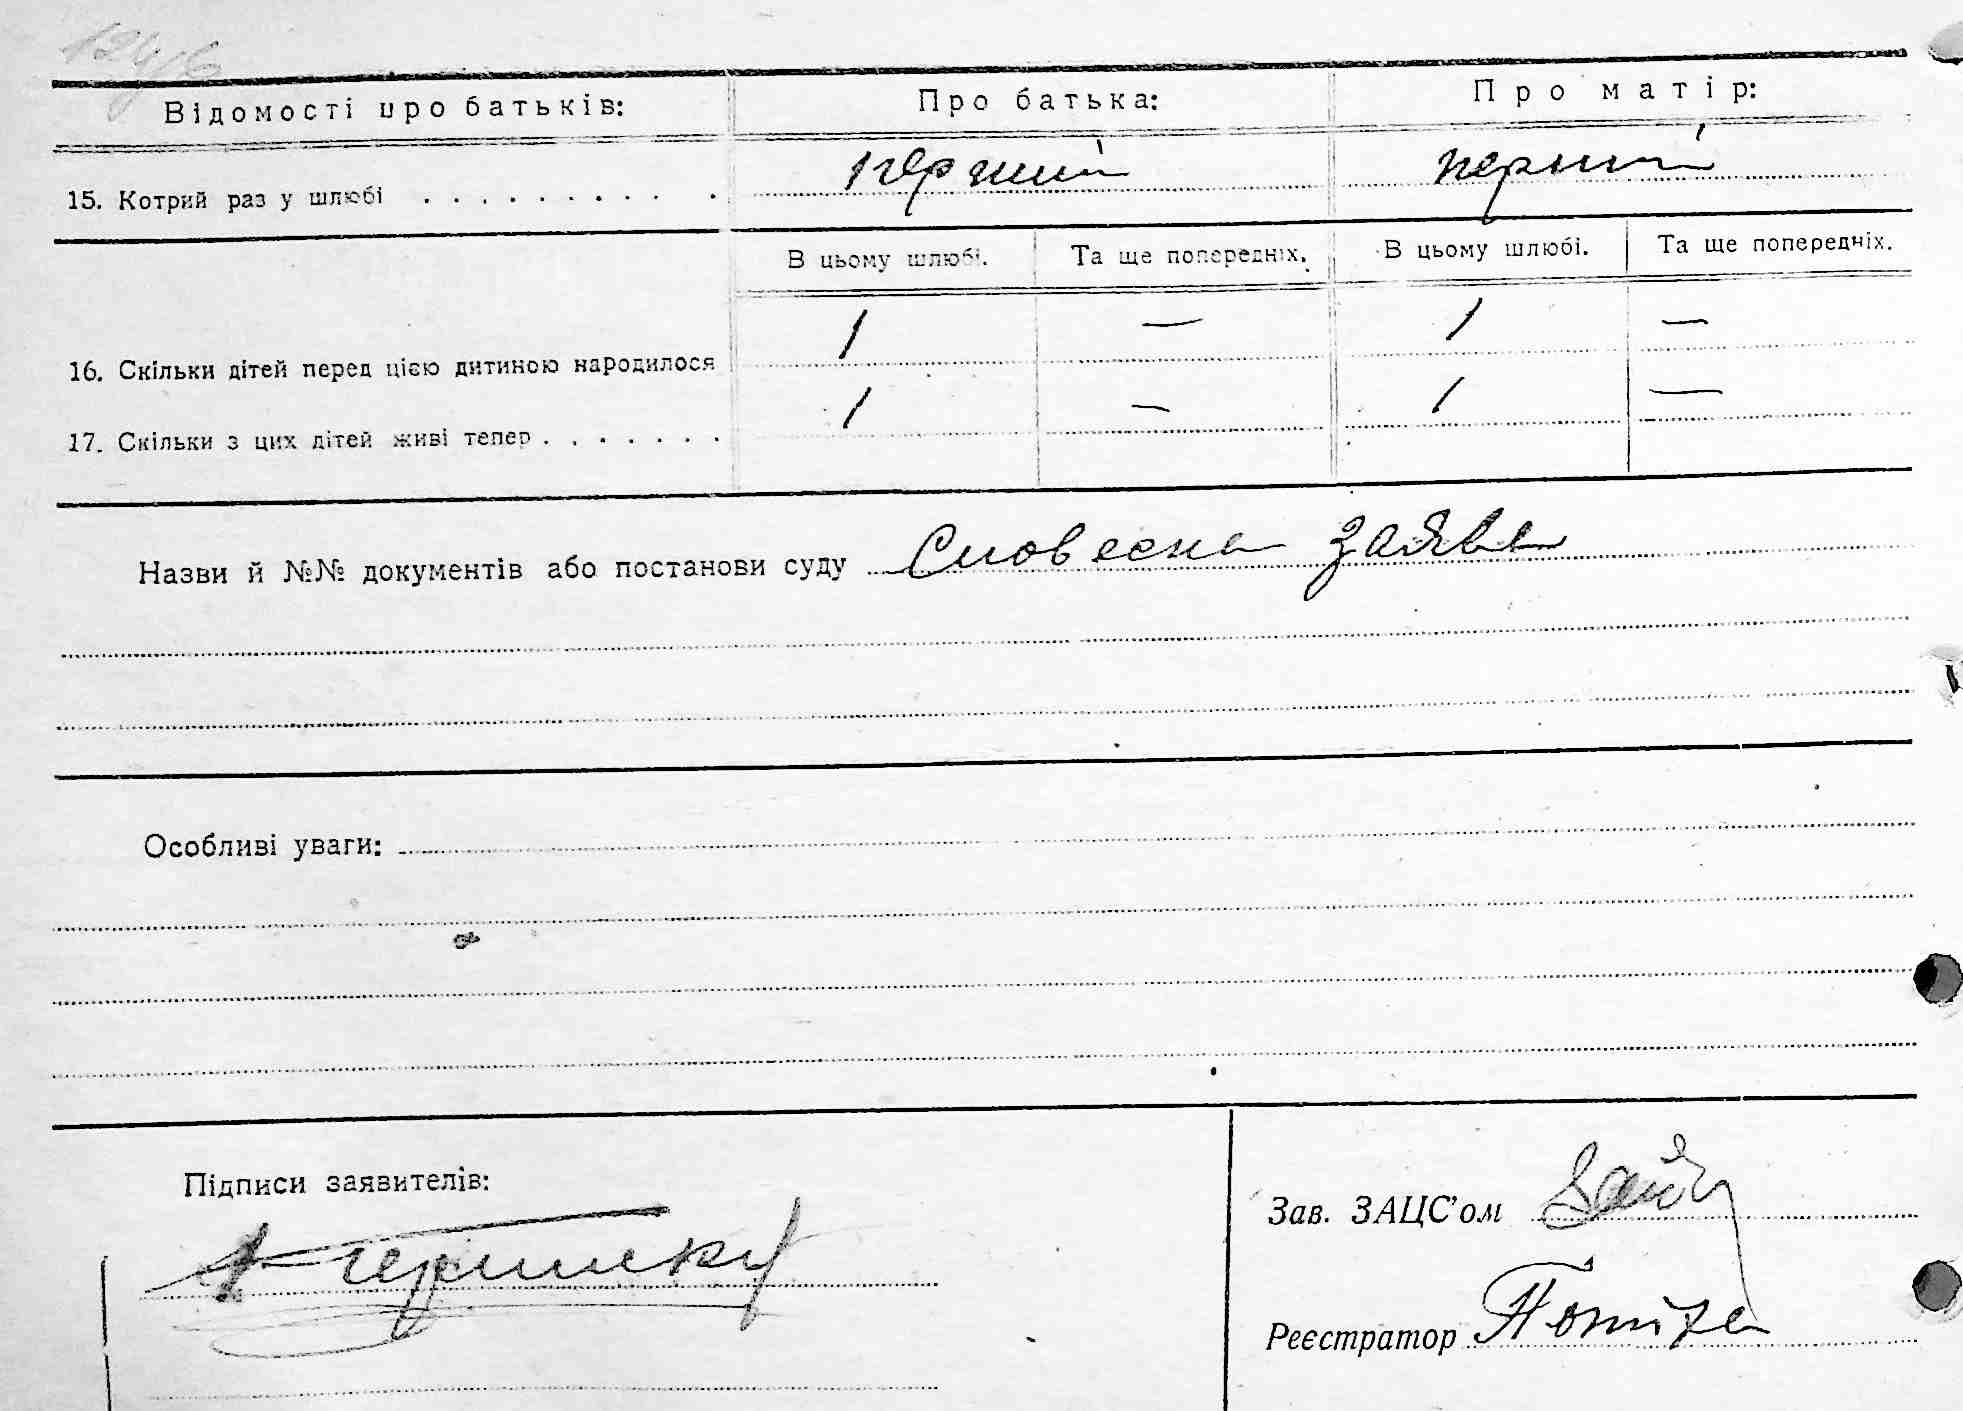 Відомості про батьків: Про батька: Про матір:
15. Котрий раз у шлюбі . . . . . . . . . . перший перший
В цьому шлюбі. Та ще попередніх. В цьому шлюбі. Та ще попередніх.
16. Скільки дітей перед цією дитиною народилося 1 — 1 —
17. Скільки з цих дітей живі тепер . . . . . . . 1 — 1 —
Назви й №№ документів або постанови суду Словесна заява
Особливі уваги:
Підписи заявителів:
Зав. ЗАЦС'ом
Реєстратор